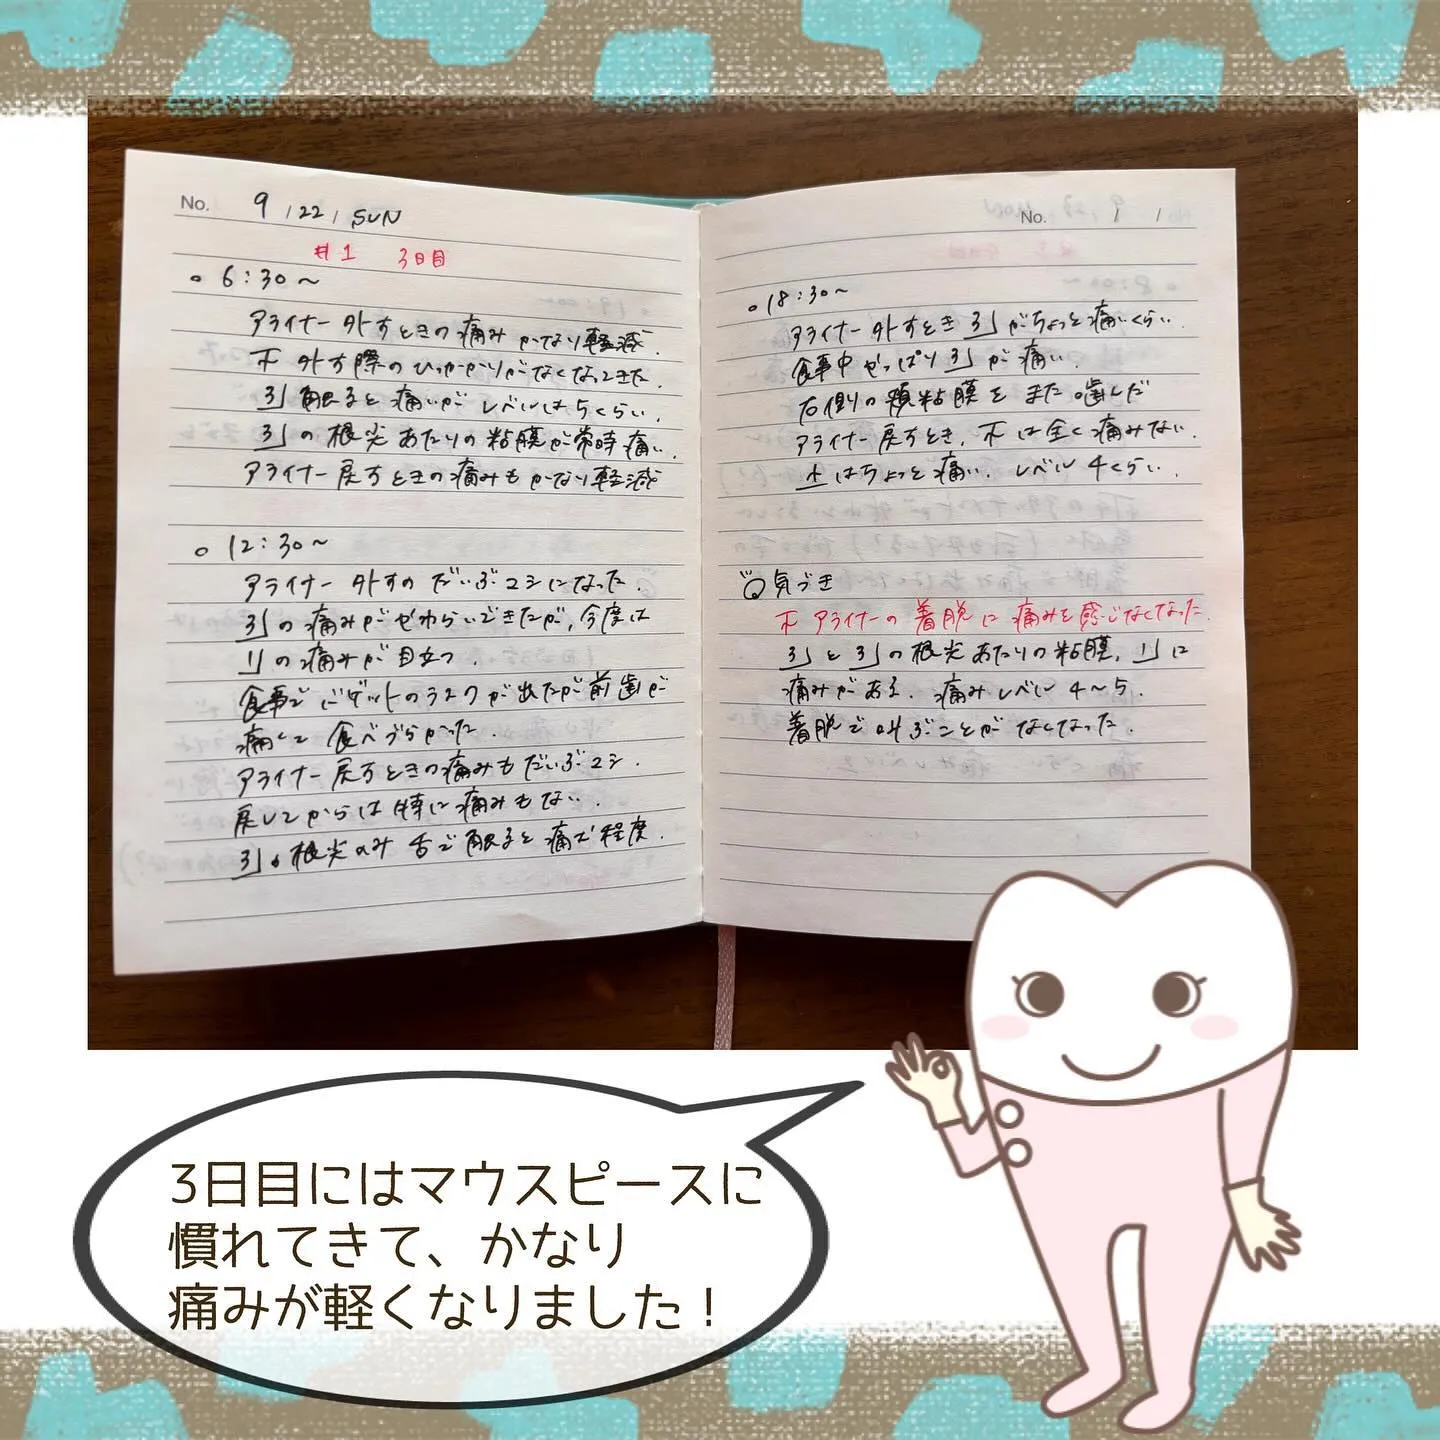 No. 9 / 22 / SUN
#1 3日目
○ 6:30〜
アライナー外すときの痛みかなり軽減.
下 外す際のひっかかりがなくなってきた.
3┘触ると痛いがレベルは5くらい.
3┘の根尖あたりの粘膜が常時痛い.
アライナー戻すときの痛みもかなり軽減
○ 12:30〜
アライナー外すのだいぶマシになった.
3┘の痛みがやわらいできたが,今度は
1┘の痛みが目立つ.
食事でバゲットのラスクが出たが前歯が
痛くて食べづらかった.
アライナー戻すときの痛みもだいぶマシ.
戻してからは特に痛みもない.
3┘の根尖のみ舌で触ると痛む程度.
No. / /
○18:30〜
アライナー外すとき3┘がちょっと痛いくらい.
食事中やっぱり3┘が痛い.
右側の頬粘膜をまた噛んだ
アライナー戻すとき,下は全く痛みない.
上はちょっと痛い.レベル4くらい.
気づき
下アライナーの着脱に痛みを感じなくなった.
3┘と3┘の根尖あたりの粘膜,1┘に
痛みがある.痛みレベル4〜5.
着脱で叫ぶことがなくなった.
3日目にはマウスピースに
慣れてきて、かなり
痛みが軽くなりました！